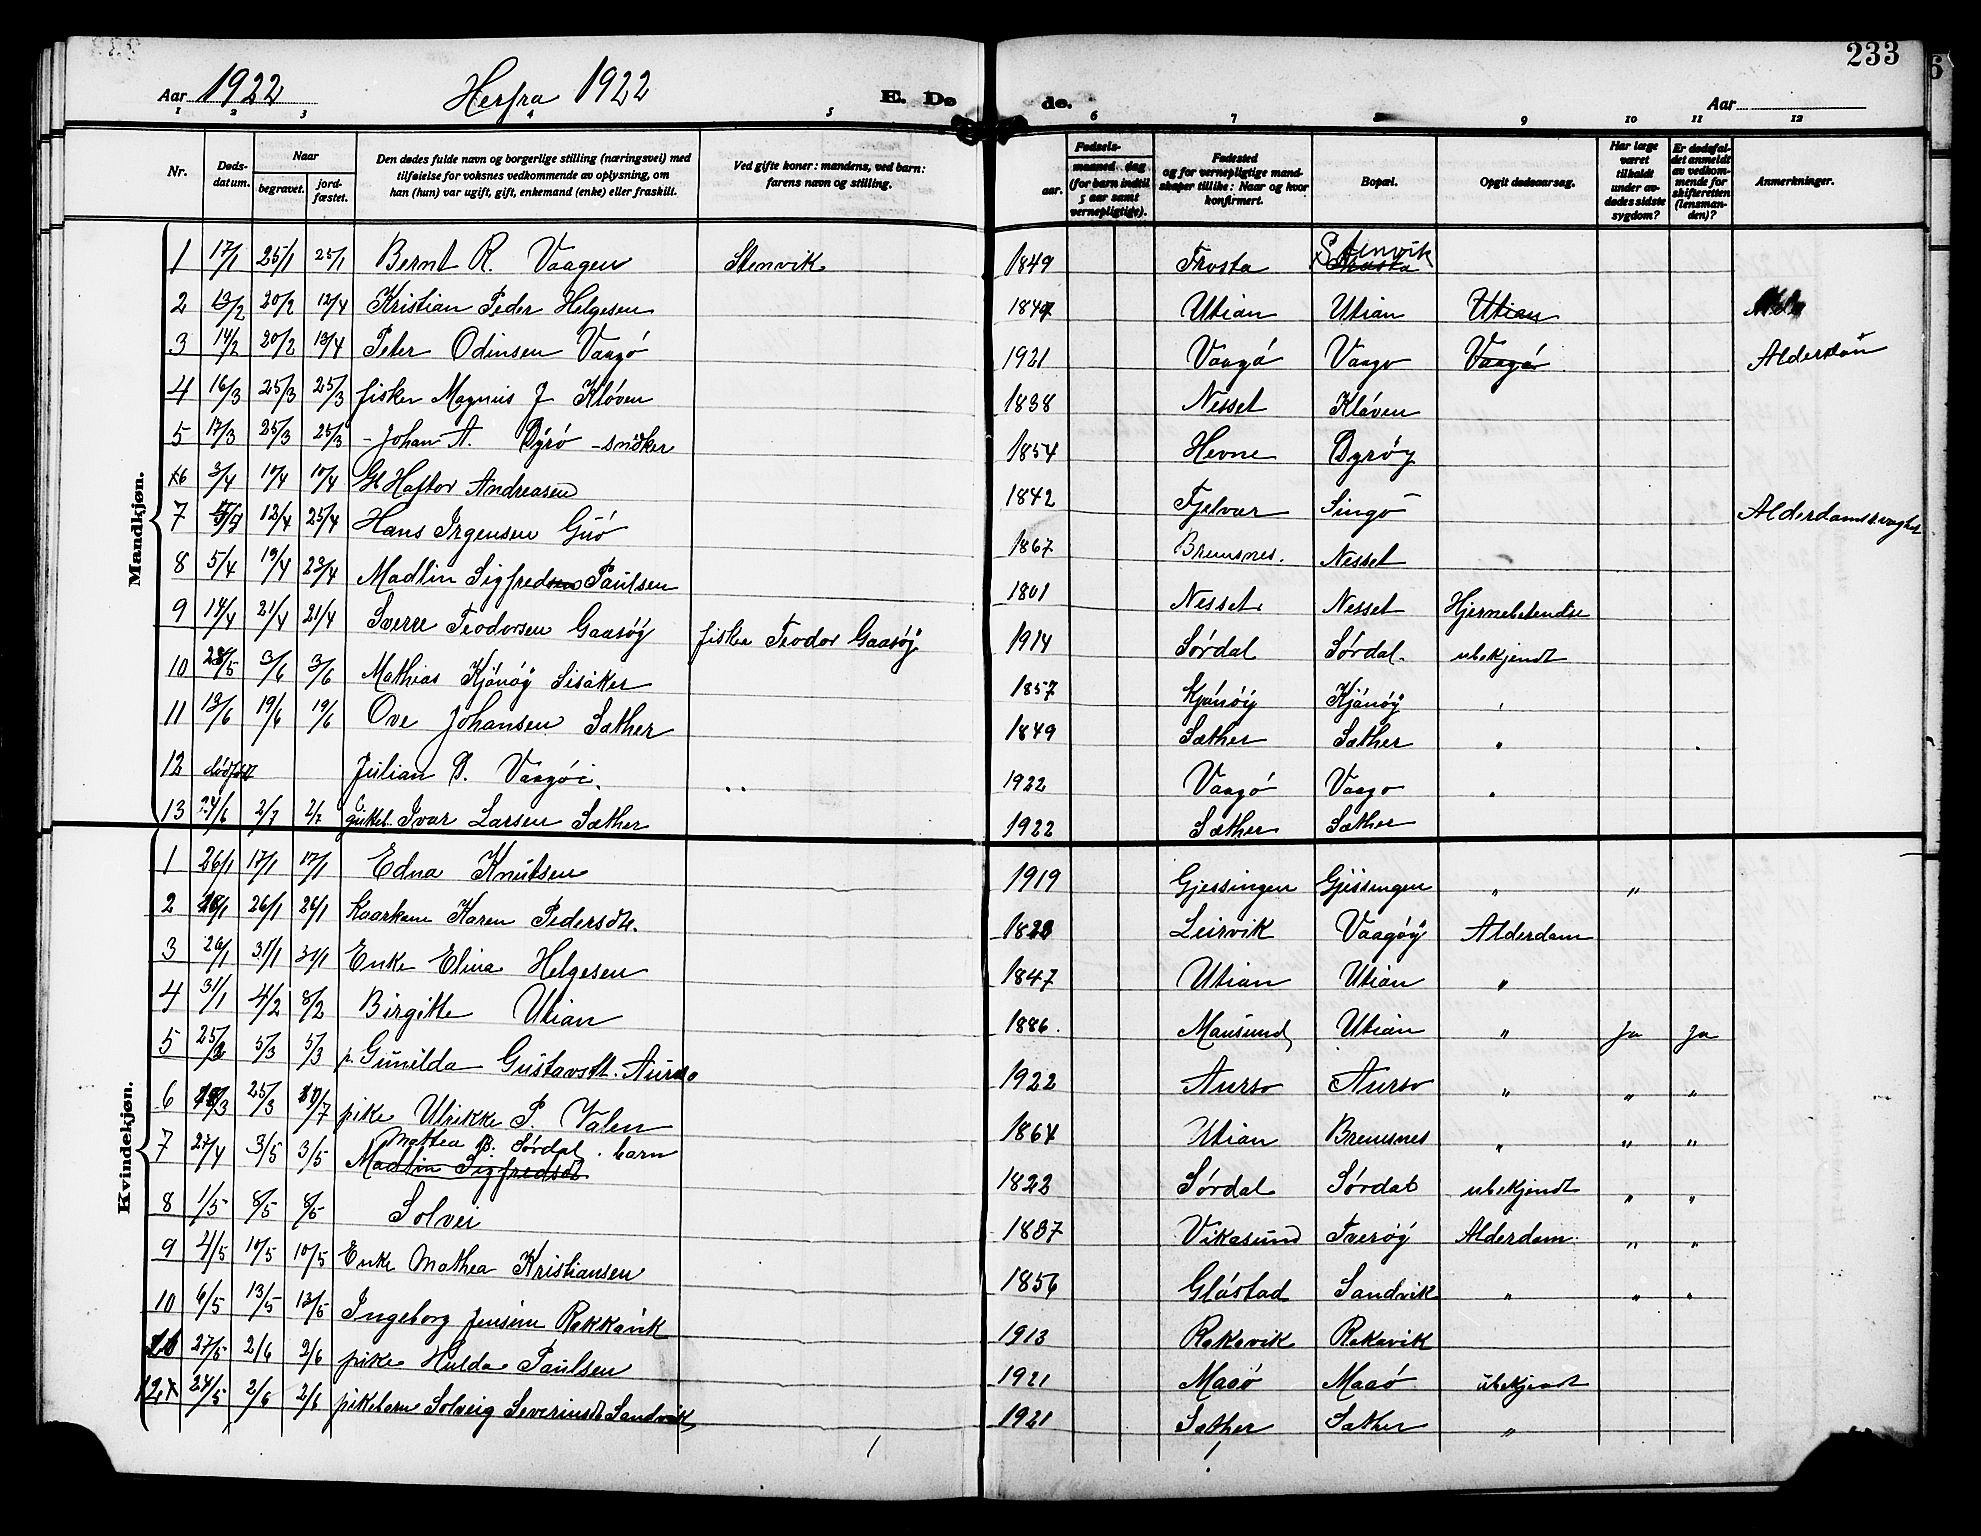 233
Aar 1922 Herfra 1922 E. Dø de. Aar
1 2 3 4 5 6 7 8 9 10 11 12
Nr. Døds-datum. Naar begravet. jord-fæstet. Den dødes fulde navn og borgerlige stilling (næringsvei) med tilføielse for voksnes vedkommende av oplysning, om han (hun) var ugift, gift, enkemand (enke) eller fraskilt. Ved gifte koner: mandens, ved barn: farens navn og stilling. Fødsels- aar. maaned. dag (for barn indtil 5 aar samt vernepligtige). Fødested og for vernepligtige mandskaper tillike: Naar og hvor konfirmert. Bopæl. Opgit dødsaarsag. Har læge været tilkaldt under avdødes sidste sygdom? Er dødsfaldet anmeldt av vedkommende for skifteretten (lensmanden)? Anmerkninger.
Mandkjøn.
1 17/1 25/1 25/1 Bernt R. Vaagen Stenvik 1849 Frosta Stenvik
2 13/2 20/2 12/4 Kristian Peder Helgesen 1847 Utian Utian Utian
3 14/2 20/2 13/4 Peter Odinsen Vaagø 1921 Vaagø Vaagø Vaagø Alderdom
4 16/3 25/3 25/3 fisker Magnus J Kløven 1838 Nesset Kløven
5 17/3 25/3 25/3 - Johan A. Dyrø - snidker 1854 Hevne Dyrøy
x6 3/4 10/4 10/4 Haftor Andreasen 1842 Fjelvær Singø
7 12/4 25/4 Hans Irgensen Guø 1867 Bremsnes. Nesset
8 5/4 19/4 23/4 Madlin Sigfredsen Paulsen 1801 Nesset Nesset Hjernebetendse
9 14/4 21/4 21/4 Sverre Teodorsen Gaasøy fisker Teodor Gaasøy 1914 Sørdal Sørdal. ubekjendt
10 28/5 3/6 3/6 Mathias Kjønøy Sisaker 1857 Kjønøy Kjønøy
11 13/6 19/6 19/6 Ove Johansen Sæther 1849 Sæther Sæther "
12 dødfødt Julian D. Vaagøi. " 1922 Vaagø Vaagø "
13 24/6 2/7 2/7 Ivar Larsen Sæther 1922 Sæther Sæther
Kvindekjøn.
1 26/1 17/1 17/1 Edna Knutsen 1919 Gjessingen Gjessingen " "
2 26/1 26/1 Kaarkone Karen Pedersdt. Leirvik Vaagøy Alderdom
3 26/1 31/1 31/1 Enke Elina Helgesen 1847 Utian Utian "
4 31/1 4/2 8/2 Birgitte Utian 1886. Mausund Utian " Ja Ja
5 5/3 5/3 p. Gunilda Gustavsdt. Aursø 1922 Aursø Aursø " " "
6 25/3 pike Ulrikke P. Valen 1864 Utian Bremsnes " " "
7 27/4 3/5 3/5 Mattea B. Sørdal. barn Madlin Sigfredsdt 1822 Sørdal Sørdal ubekjendt " "
8 1/5 8/5 8/5 Solvei 1837 Vikasund Tverøy Alderdom. " "
9 4/5 10/5 10/5 Enke Mathea Kristiansen 1856 Gløstad Sandvik " " "
10 6/5 13/5 13/5 Ingeborg Jensine Rakkavik 1913 Rakavik Rakavik
11 27/5 2/6 2/6 pike Hulda Paulsen 1921 Maaø Maaø ubekjendt
12x 24/5 2/6 2/6 pikebarn Solveig Severinsdt Sandvik 1921 Sæther Sæther "